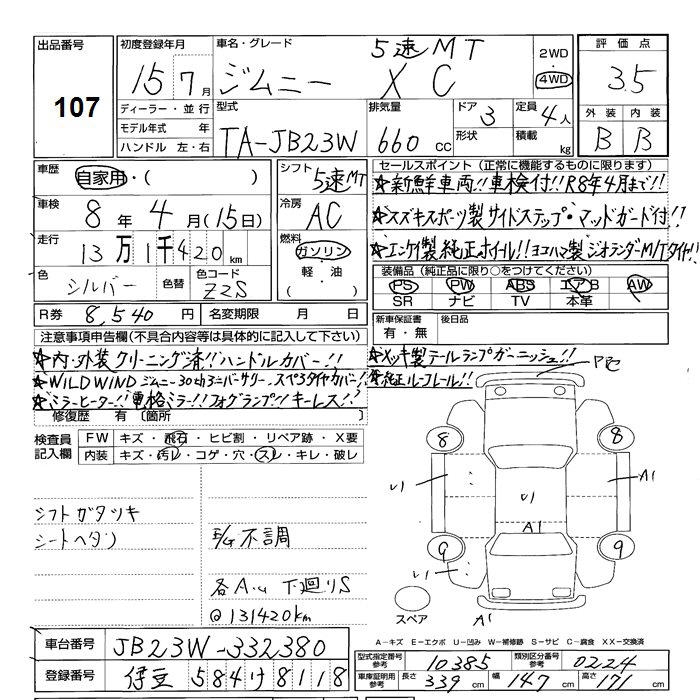 出品番号
107
初度登録年月
15 7月
車名・グレード
5速MT
ジムニー XC
2WD
4WD
評価点
3.5
外装 内装
B B
ディーラー・並行
モデル年式 年
ハンドル 左・右
型式
TA-JB23W
排気量
660 cc
ドア 3
形状
定員 4人
積載 kg
車歴
自家用・( )
車検
8年 4月(15日)
走行
13万1千420km
色
シルバー
色替
色コード
Z2S
シフト
5速MT
冷房
AC
燃料
ガソリン
軽・油
( )
R券 8,540円
名変期限 月 日
セールスポイント(正常に機能するものに限ります)
☆新鮮車両!!車検付!!R8年4月まで!!
☆スズキスポーツ製サイドステップ・マッドガード付!!
☆エンケイ製純正ホイール!!ヨコハマ製ジオランダーM/Tタイヤ!!
装備品(純正品に限り○をつけてください)
PS PW ABS エアB AW
SR ナビ TV 本革
新車保証書
有・無
後日品
注意事項申告欄(不具合内容等は具体的に記入して下さい)
☆内・外装クリーニング済!!ハンドルカバー!! ☆メッキ製テールランプガーニッシュ!!
☆WILD WIND ジムニー30thアニバーサリー スペアタイヤカバー!! ☆純正ルーフレール!!
☆ミラーヒーター!!電格ミラー!!フォグランプ!!キーレス!!
修復歴 有 〔箇所
検査員
記入欄
FW キズ・飛石・ヒビ割・リペア跡・X要
内装 キズ・汚レ・コゲ・穴・スレ・キレ・破レ
シフトガタツキ
シートヘタリ
E/G不調
各A.U 下廻りS
@131420km
8 8
9 9
U1
U1
A1
A1
U1
A1
スペア
A-キズ E-エクボ U-凹み W-補修跡 S-サビ C-腐食 XX-交換済
車台番号 JB23W-332380
登録番号 伊豆 584 け 8118
型式指定番号
参考
10385
類別区分番号
参考
0224
車庫証明用
参考
長さ 339cm 幅 147cm 高さ 171cm